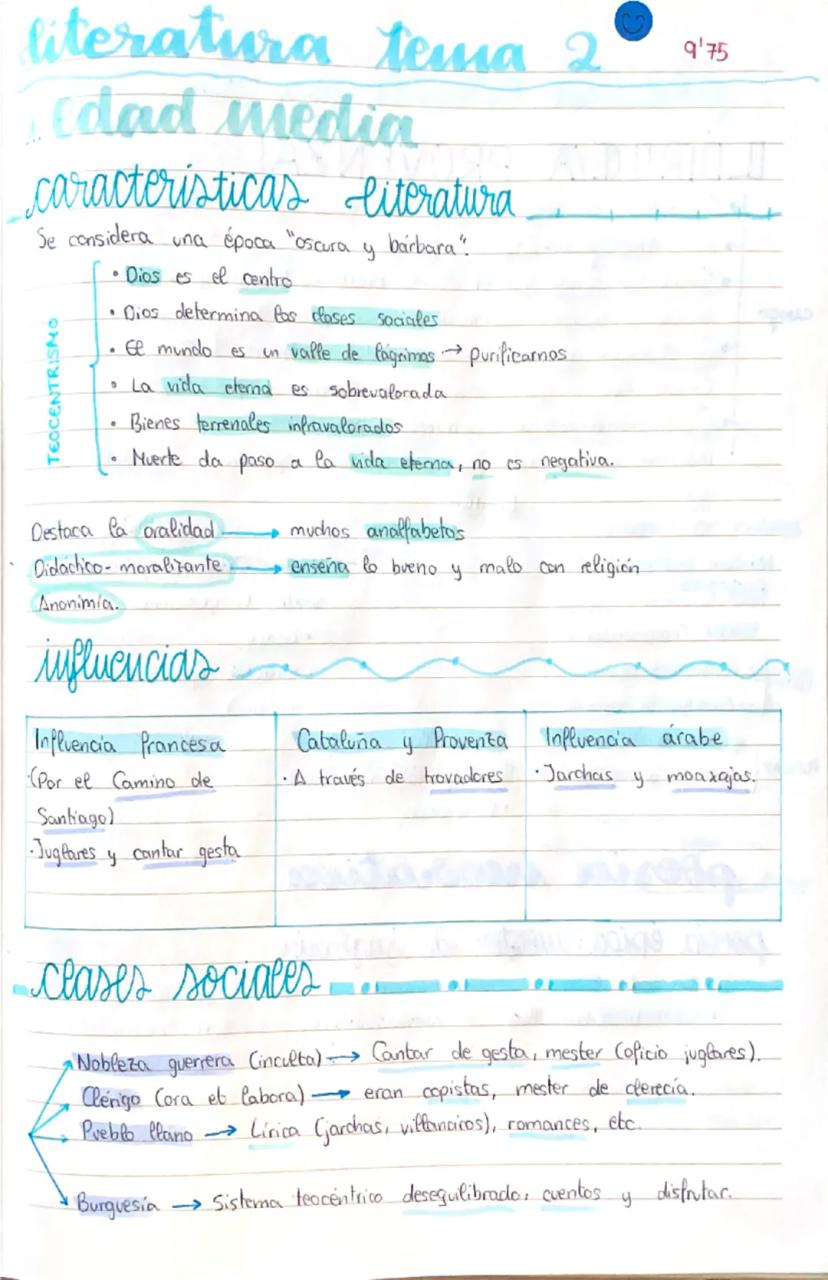 literatura tema 2
9'75
Edad media
características literatura
Se considera una época "oscura y bárbara".
TEOCENTRISMO
• Dios es el centro
• Dios determina las clases sociales
• El mundo es un valle de lágrimas → purificarnos
• La vida eterna es sobrevalorada
• Bienes terrenales infravalorados
• Muerte da paso a la vida eterna, no es negativa.
Destaca la oralidad → muchos analfabetos
Didáctico-moralizante → enseña lo bueno y malo con religión
Anonimia.
influencias
Influencia francesa
(Por el Camino de
Santiago)
·Juglares y cantar gesta
Cataluña y Provenza
· A través de trovadores
Influencia árabe
· Jarchas y moaxajas.
clases sociales
Nobleza guerrera (inculta) → Cantar de gesta, mester (oficio juglares).
Clérigo (ora et labora) → eran copistas, mester de clerecía.
Pueblo llano → Lírica (jarchas, villancicos), romances, etc.
Burguesía → Sistema teocéntrico desequilibrado, cuentos y disfrutar.